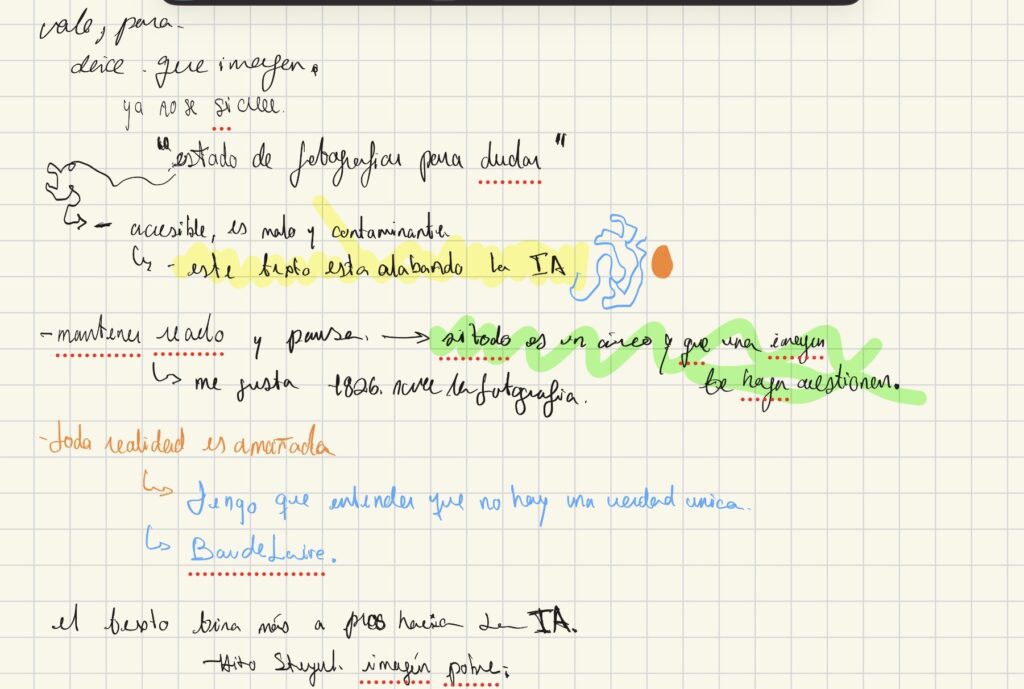 vale, para
deice que imagen.
ya no se si cree.
"estado de fotografiar para dudar"
- accesible, es malo y contaminante
- este texto esta alabando la IA
- mantener reado y pausa. → si todo es un circo y que una imagen
me gusta 1826. nace la fotografia. te haga cuestionen.
- toda realidad es amañada
Tengo que entender que no hay una verdad unica.
Baudelaire.
el texto tira más a pros hacia la IA.
- Hito Steyerl. imagín pobre: